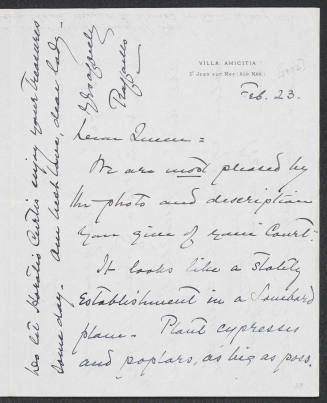 VILLA AMICITIA
St Jean sur Mer (Alp. Mar.)
Feb. 23.
Dear Queen =
We are most pleased by
the photo and description
you give of your Court.
It looks like a stately
establishment in a Lombard
plain. Plant cypresses
and poplars, as big as poss.
let Horatio Curtis enjoy your treasures
some day. Our best love, dear lady.
Yrs
Raffaello